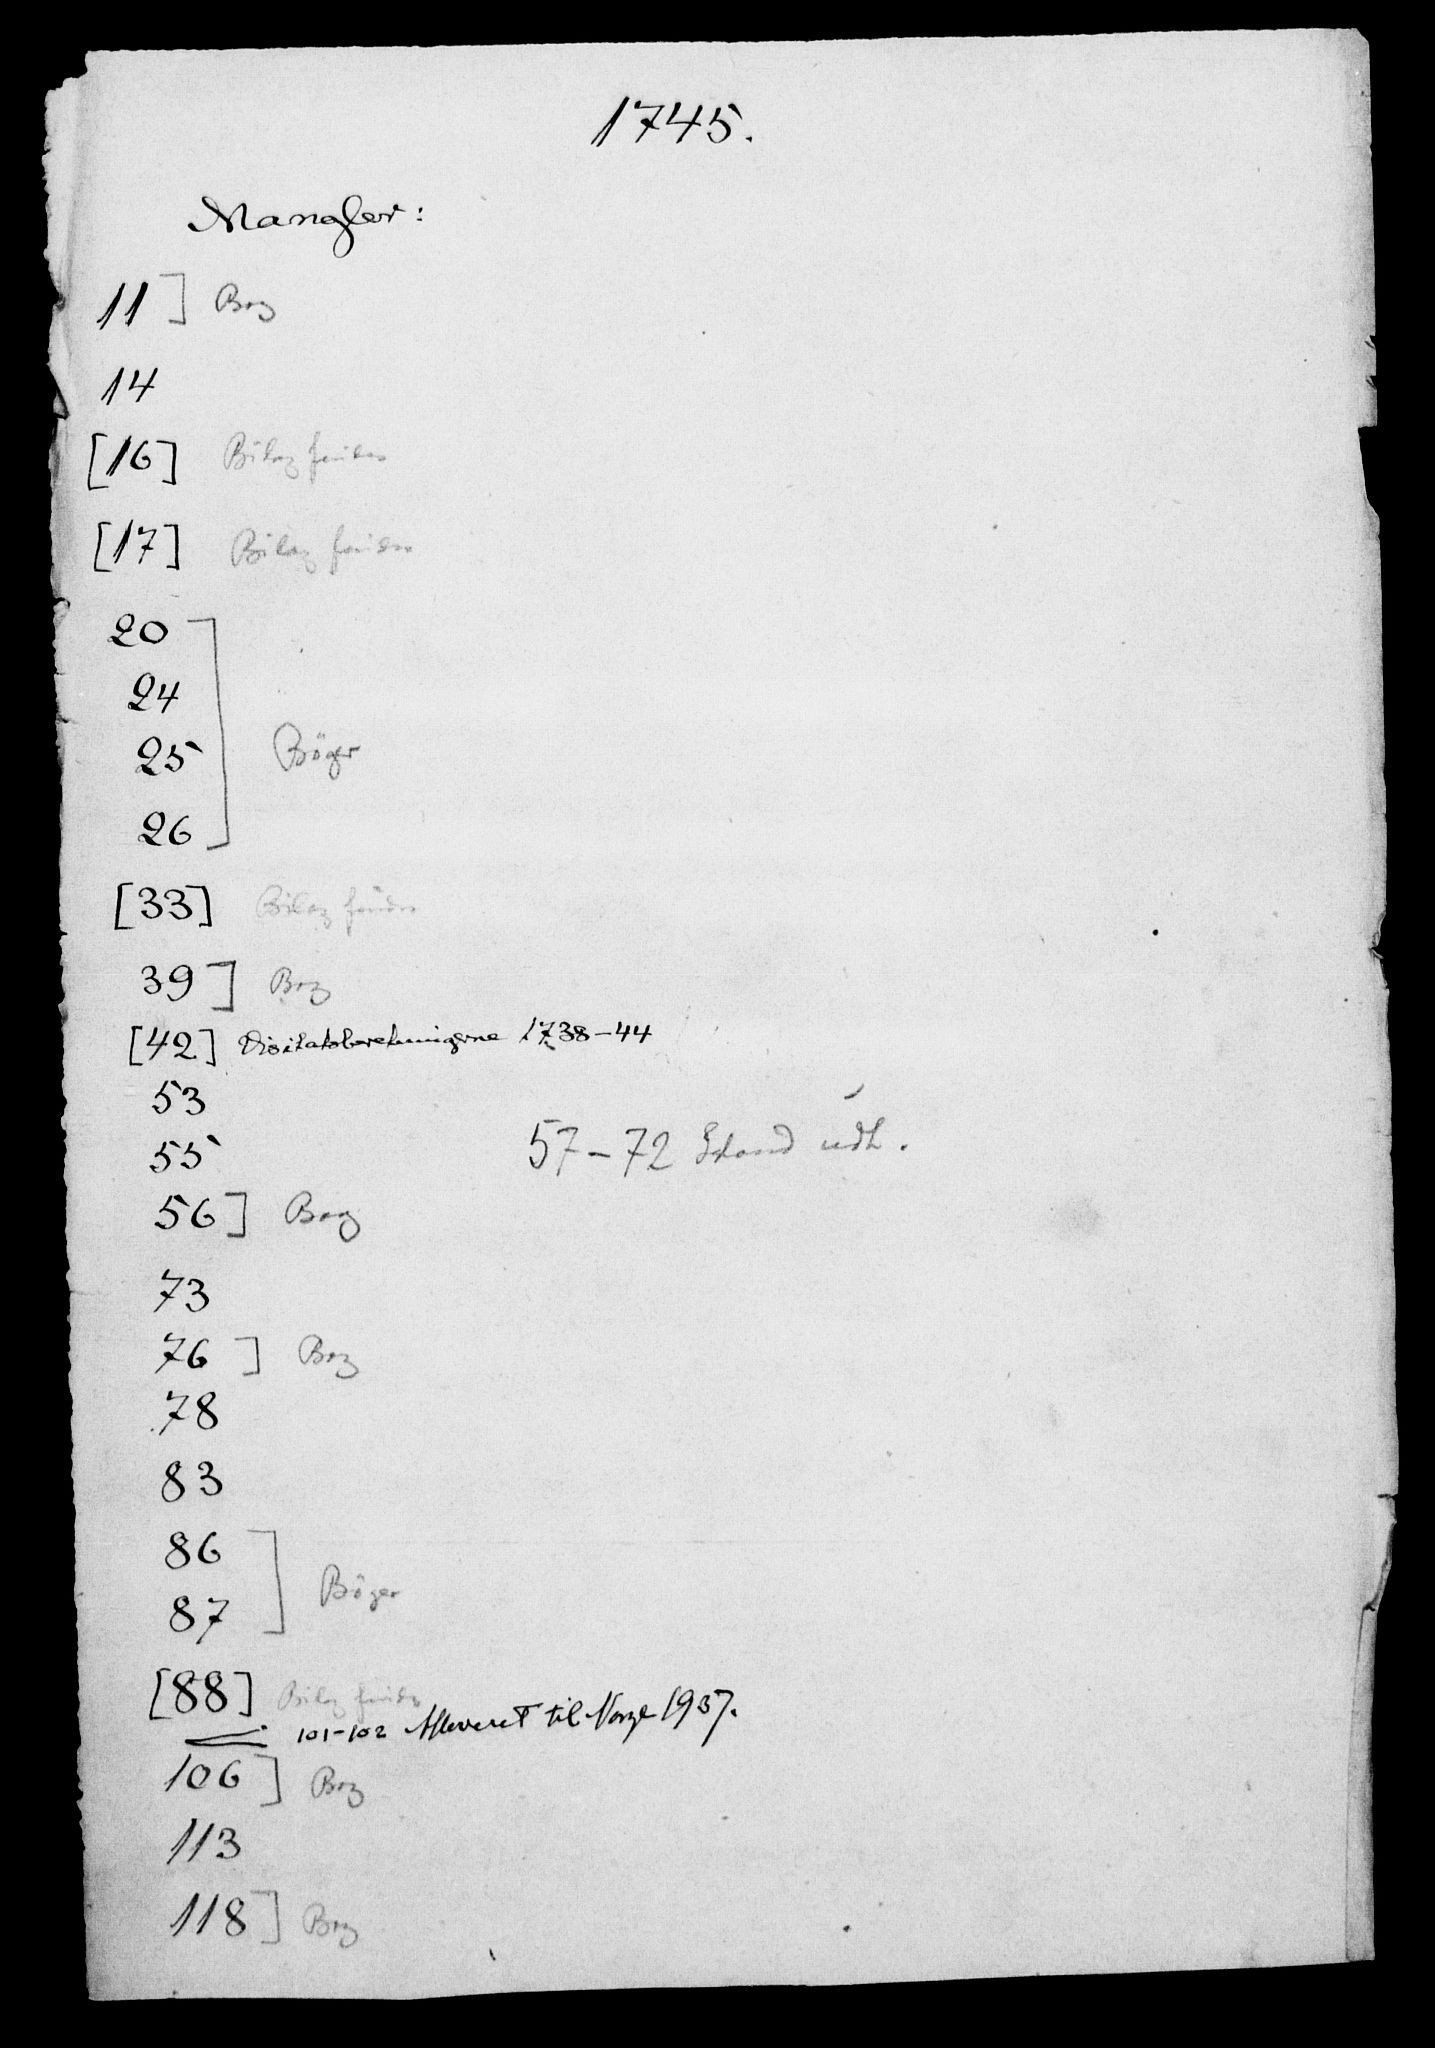 1745.
Mangler:
11] Bog
14
[16] Bilag findes
[17] Bilag findes
20
24
25
Böger
26
[33] Bilag findes
39] Bog
[42] Visitatsberetningerne 1738-44
53
57-72 Island udt.
55
56] Bog
73
76] Bog
78
83
86
Böger
87
[88] Bilag findes
101-102 Afleveret til Norge 1937.
106] Bog
113
118] Bog